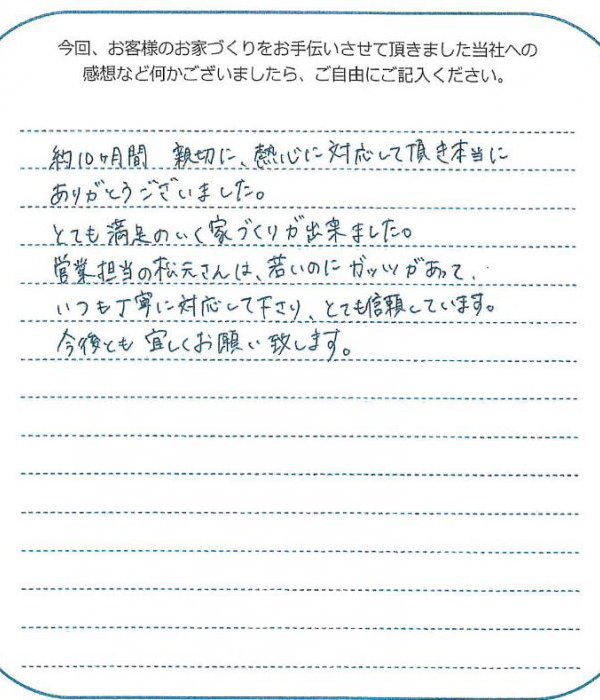 今回、お客様のお家づくりをお手伝いさせて頂きました当社への
感想など何かございましたら、ご自由にご記入ください。
約10ヶ月間 親切に、熱心に対応して頂き本当に
ありがとうございました。
とても満足のいく家づくりが出来ました。
営業担当の松元さんは、若いのにガッツがあって、
いつも丁寧に対応して下さり、とても信頼しています。
今後とも宜しくお願い致します。